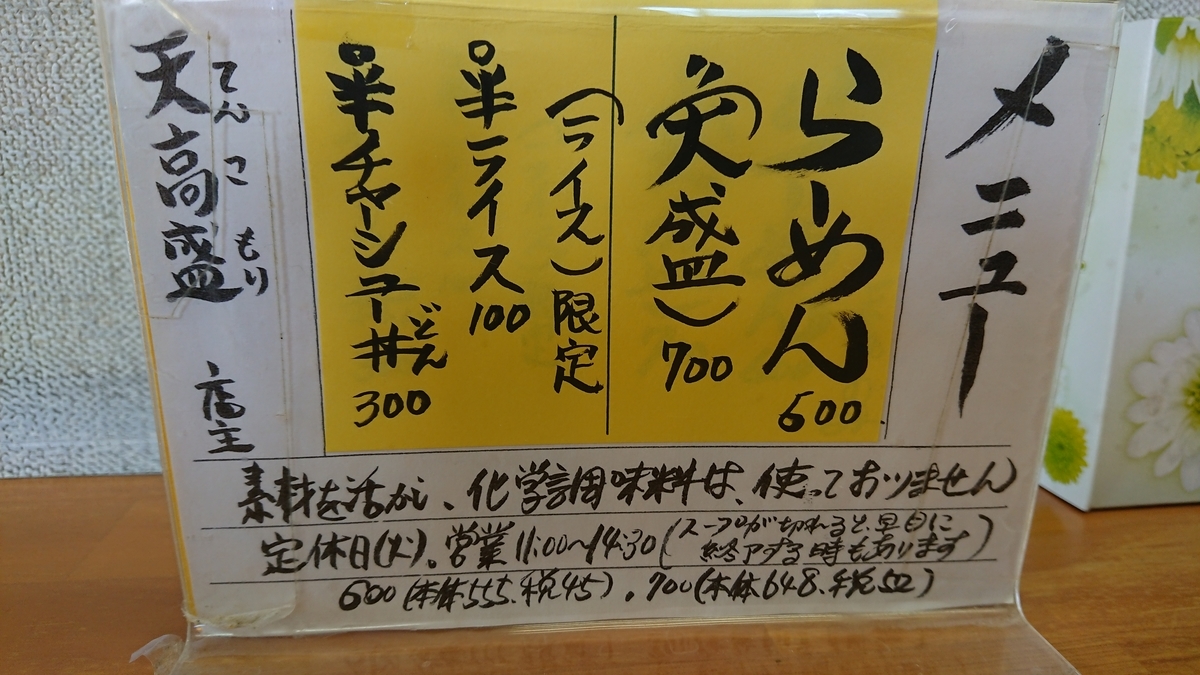 メニュー
らーめん 600
(大盛) 700
(ライス)限定
半ライス 100
半チャーシュー丼 300
どん
てんこもり
天高盛 店主
素材を活かし、化学調味料は、使っておりません
定休日(火)。営業11:00〜14:30(スープが切れると、早目に
終了する時もあります)
600(本体555、税45)。700(本体648、税52)